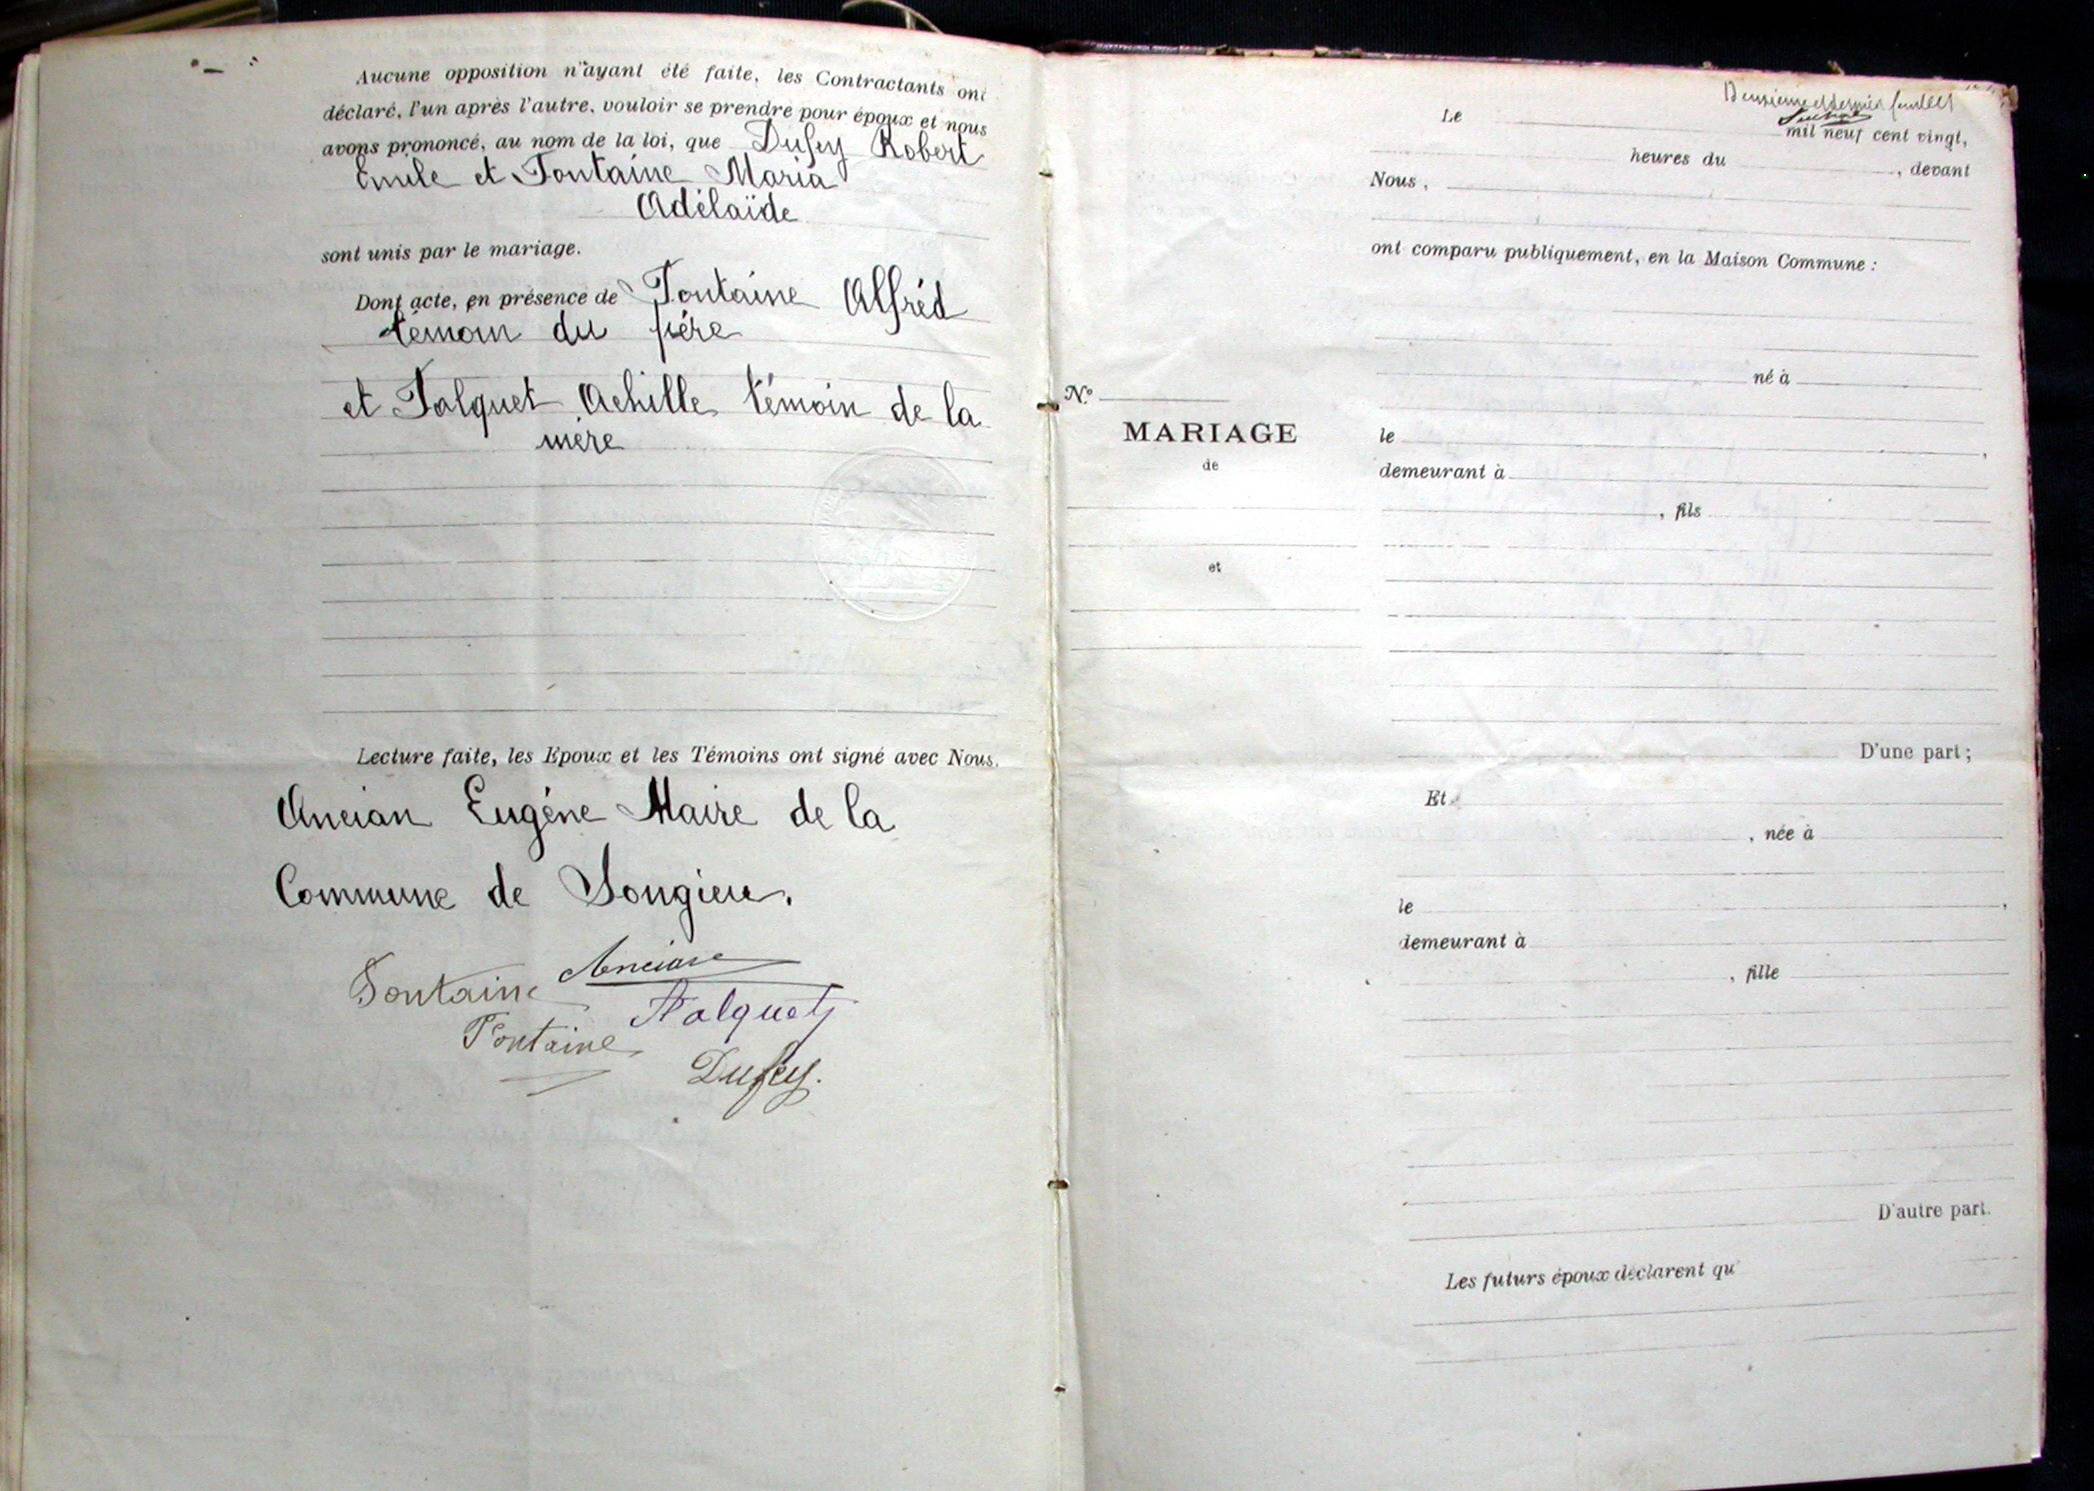 Aucune opposition n'ayant été faite, les Contractants ont
déclaré, l'un après l'autre, vouloir se prendre pour époux et nous
avons prononcé, au nom de la loi, que Dufey Robert
Emile et Fontaine Maria
Adélaïde
sont unis par le mariage.
Dont acte, en présence de Fontaine Alfréd
témoin du père
et Falquet Achille témoin de la
mère
Lecture faite, les Epoux et les Témoins ont signé avec Nous.
Ancian Eugène Maire de la
Commune de Songieu.
Fontaine Ancian
Falquet
Fontaine
Dufey.
Deuxième et dernier feuillet
Le
mil neuf cent vingt,
heures du , devant
Nous,
ont comparu publiquement, en la Maison Commune :
né à
N°
MARIAGE
le ,
de
demeurant à
, fils
et
D'une part ;
Et
, née à
le ,
demeurant à
, fille
D'autre part.
Les futurs époux déclarent qu'